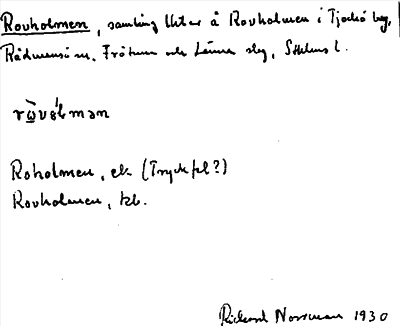 Rovholmen, samling Uter å Rovholmen i Tjockö by,
Rådmansö sn. Frötuna och Länna slg, Sthlms l.
Roholmen, ek. (Tryckfel?)
Rovholmen, kb.
Rickard Norrman 1930